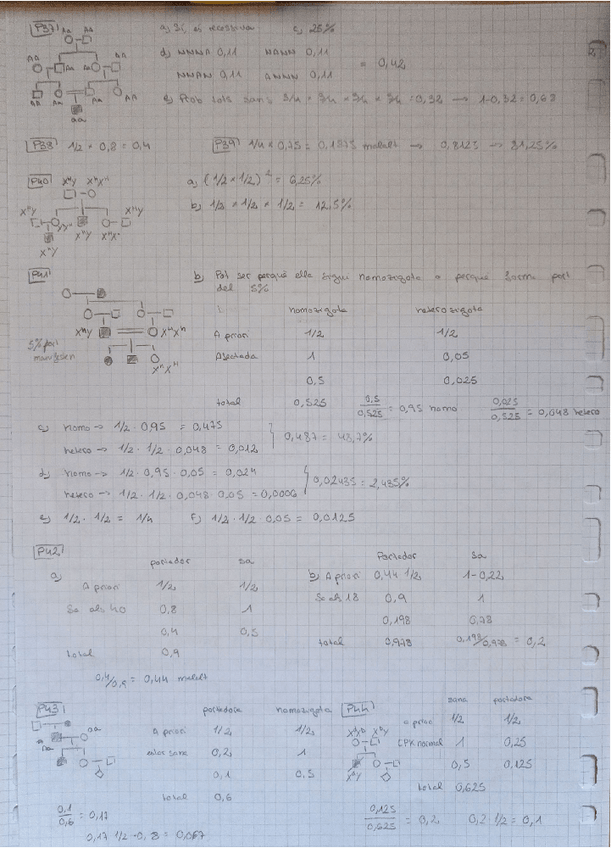 P37
a) Sí, es recessiva c) 25%
d) NNNA 0,11 NANN 0,11
NNAN 0,11 ANNN 0,11 = 0,42
e) Prob tots sans 3/4 · 3/4 · 3/4 · 3/4 = 0,32 → 1-0,32 = 0,68
Aa Aa
AA Aa Aa AA
AA Aa Aa AA
aa
P38 1/2 · 0,8 = 0,4
P39 1/4 · 0,75 = 0,1875 malalt → 0,8125 → 81,25%
P40
a) (1/2 · 1/2)² = 6,25%
b) 1/2 · 1/2 · 1/2 = 12,5%
P41
b) Pot ser perquè ella sigui homozigota o perquè forma part
del 5%
homozigota heterozigota
A priori 1/2 1/2
Afectada 1 0,05
0,5 0,025
total 0,525 0,5/0,525 = 0,95 homo 0,025/0,525 = 0,048 hetero
c) homo → 1/2 · 0,95 = 0,475
hetero → 1/2 · 1/2 · 0,048 = 0,012
0,487 = 48,7%
d) homo → 1/2 · 0,95 · 0,05 = 0,024
hetero → 1/2 · 1/2 · 0,048 · 0,05 = 0,0006
0,02435 = 2,435%
e) 1/2 · 1/2 = 1/4 f) 1/2 · 1/2 · 0,05 = 0,0125
P42
a)
portador sa
A priori 1/2 1/2
Sa als 40 0,8 1
0,4 0,5
total 0,9
0,4/0,9 = 0,44 malalt
Portador Sa
b) A priori 0,44 · 1/2 1-0,22
Sa als 18 0,9 1
0,198 0,78
total 0,978 0,198/0,978 = 0,2
P43
portadora homozigota
A priori 1/2 1/2
0,2 1
0,1 0,5
total 0,6
0,1/0,6 = 0,17
0,17 · 1/2 · 0,8 = 0,067
P44
sana portadora
a priori 1/2 1/2
CPK normal 1 0,25
0,5 0,125
total 0,625
0,125/0,625 = 0,2 0,2 · 1/2 = 0,1